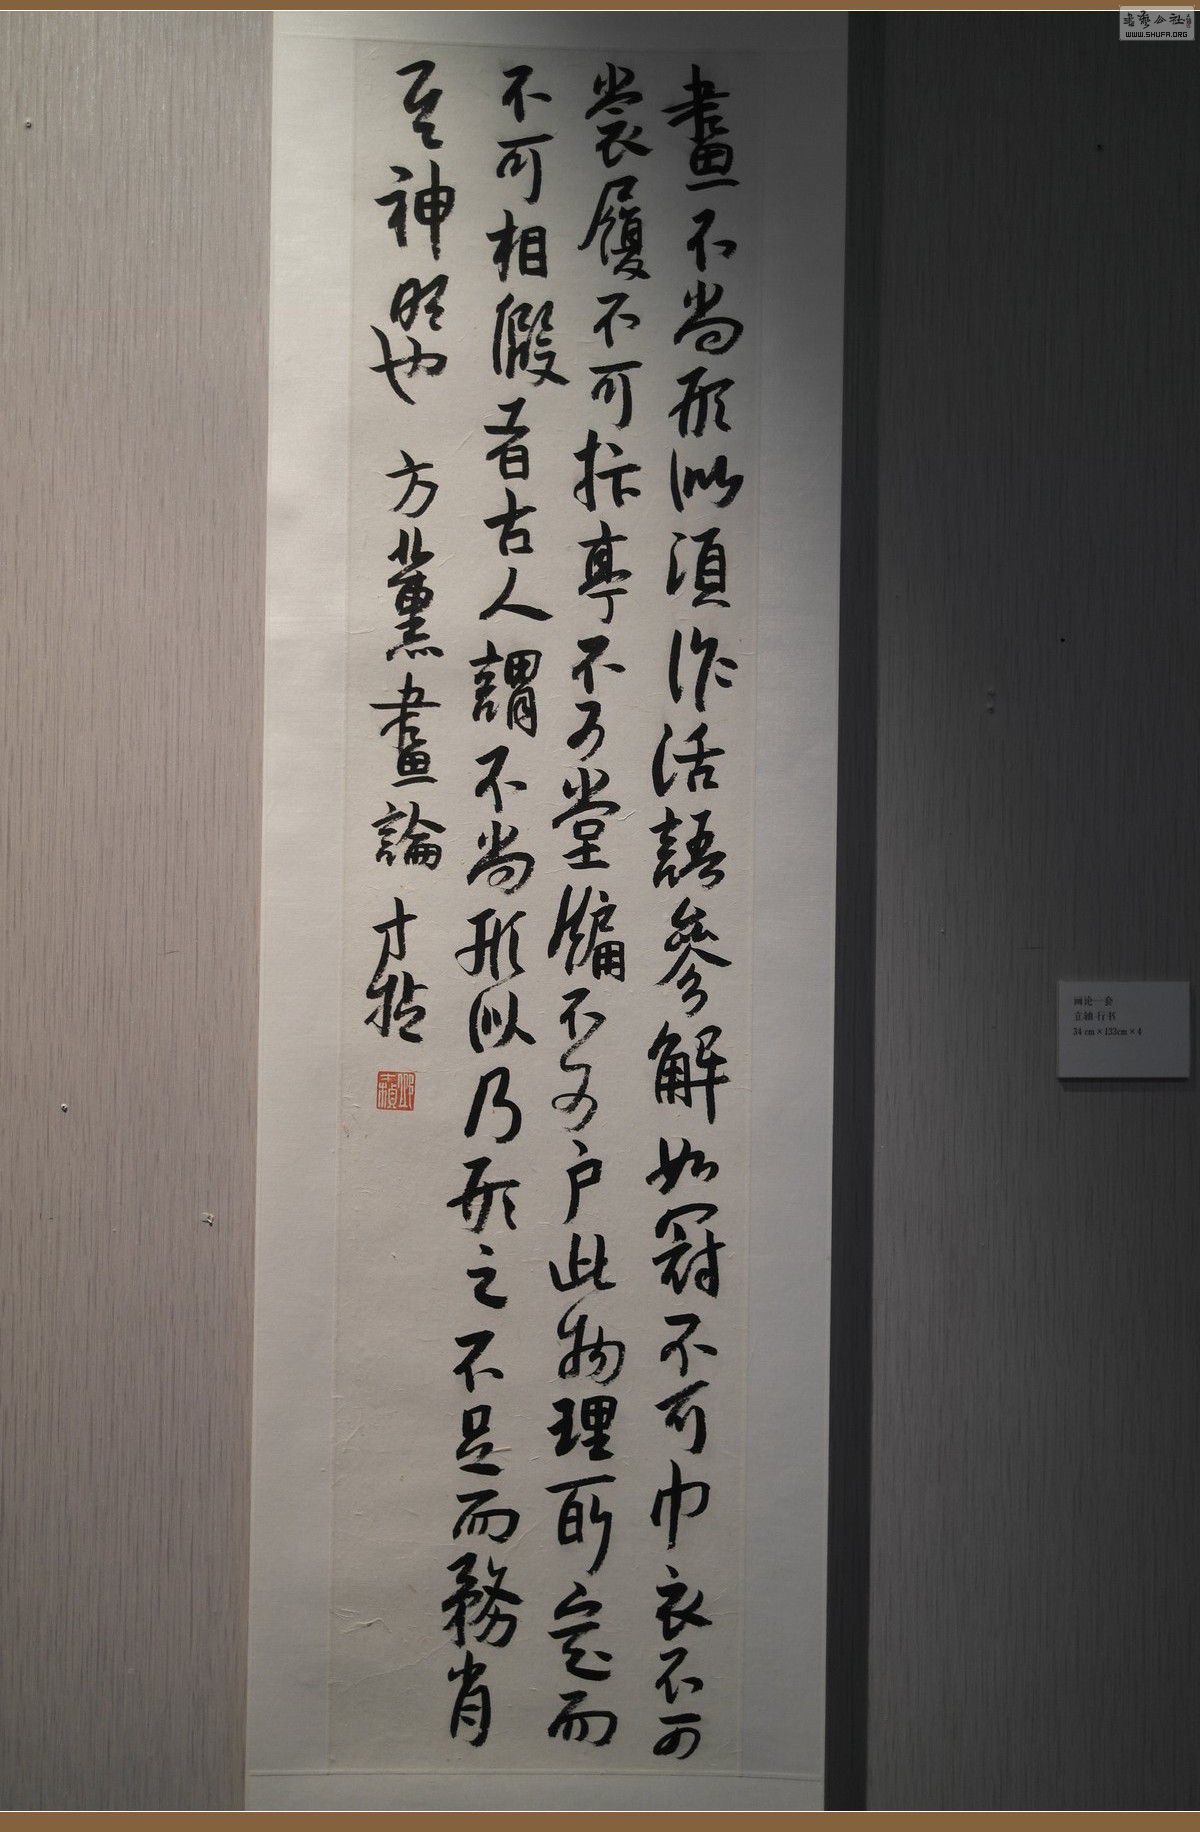 畫不尚形似須作活語參解如冠不可巾衣不可
裳履不可亭不可堂牖不可户此物理所定而
不可相假者古人謂不尚形似乃形之不足而務肖
其神明也 方薰畫論 才
画论一套
立轴 行书
34 cm×133cm×4
書藝公社
WWW.SHUFA.ORG